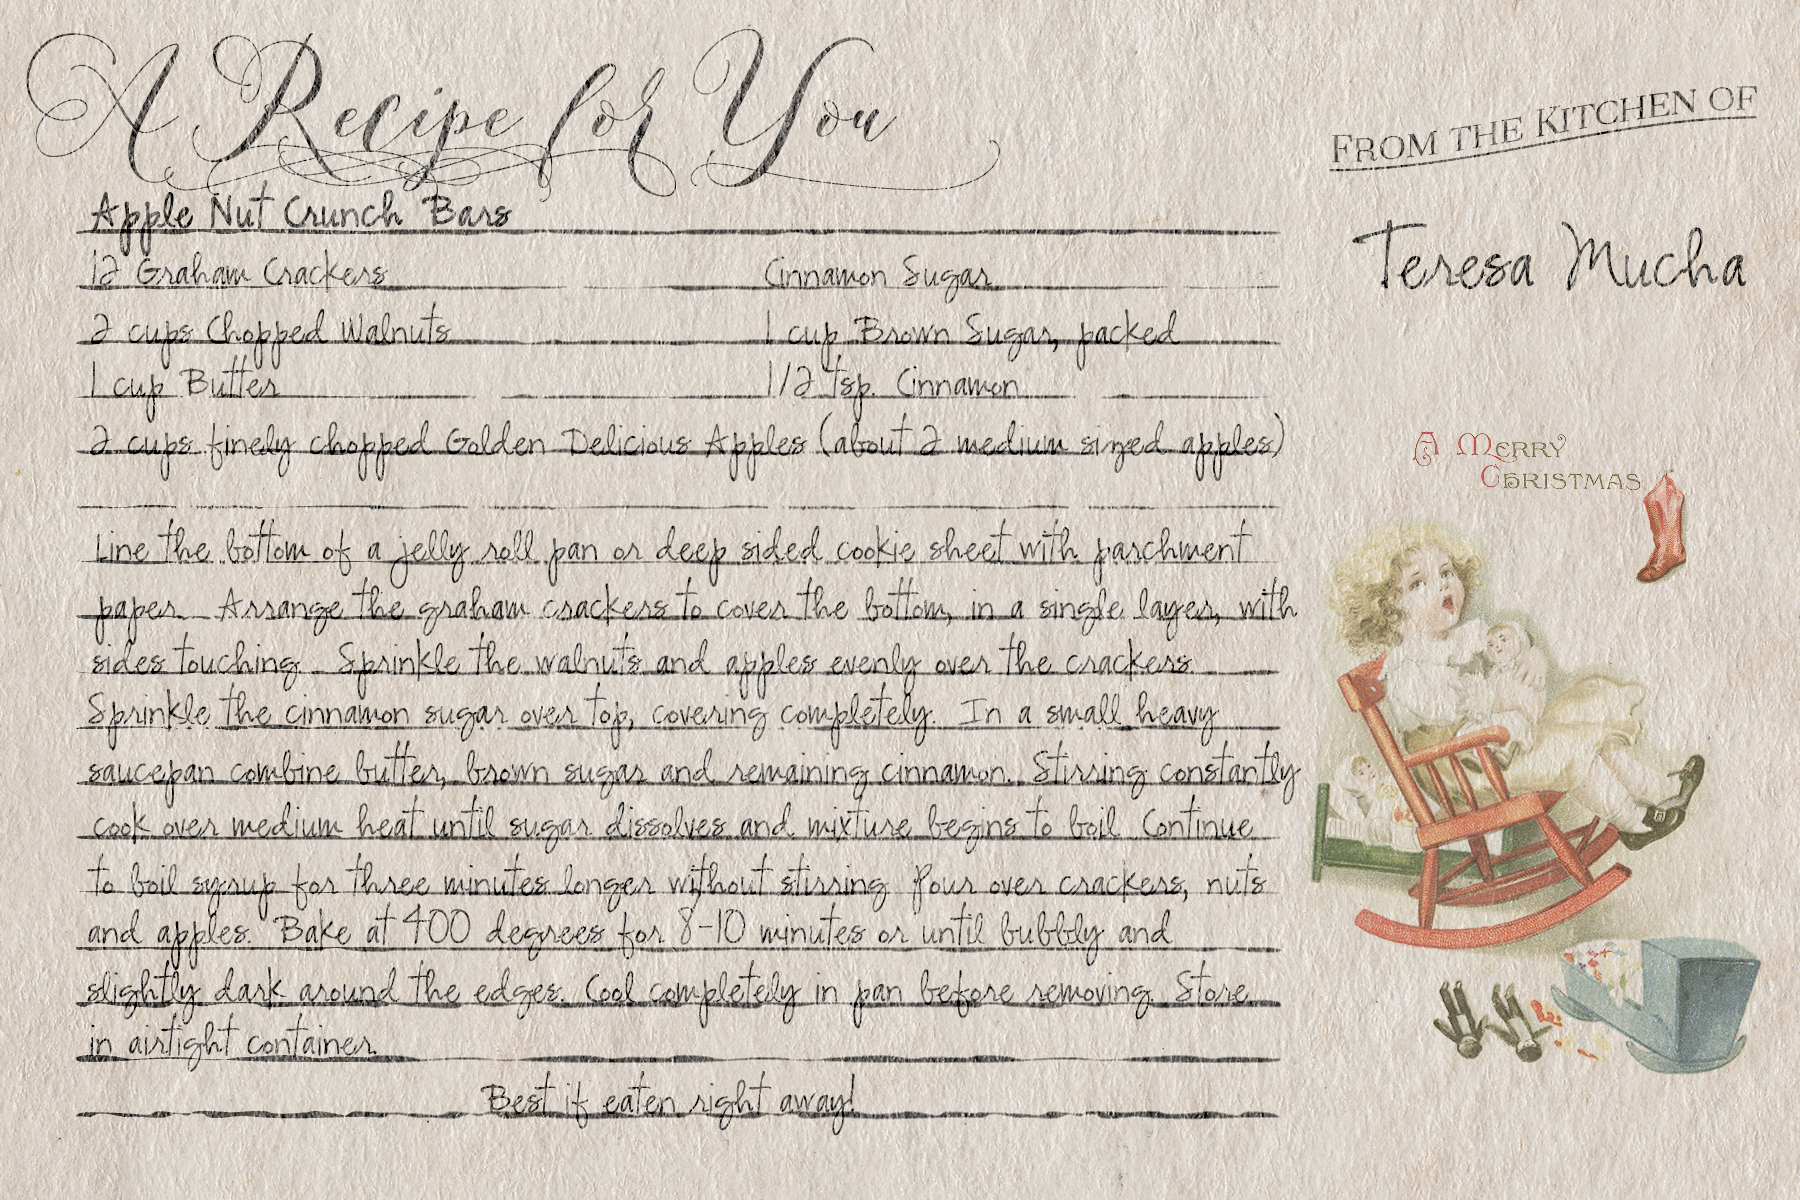 A Recipe for You
From the Kitchen of
Teresa Mucha
Apple Nut Crunch Bars
12 Graham Crackers Cinnamon Sugar
2 cups Chopped Walnuts 1 cup Brown Sugar, packed
1 cup Butter 1/2 tsp. Cinnamon
2 cups finely chopped Golden Delicious Apples (about 2 medium sized apples)
Line the bottom of a jelly roll pan or deep sided cookie sheet with parchment
paper. Arrange the graham crackers to cover the bottom, in a single layer, with
sides touching. Sprinkle the walnuts and apples evenly over the crackers.
Sprinkle the cinnamon sugar over top, covering completely. In a small heavy
saucepan combine butter, brown sugar and remaining cinnamon. Stirring constantly
cook over medium heat until sugar dissolves and mixture begins to boil. Continue
to boil syrup for three minutes longer without stirring. Pour over crackers, nuts
and apples. Bake at 400 degrees for 8-10 minutes or until bubbly and
slightly dark around the edges. Cool completely in pan before removing. Store
in airtight container.
Best if eaten right away!
A Merry
Christmas